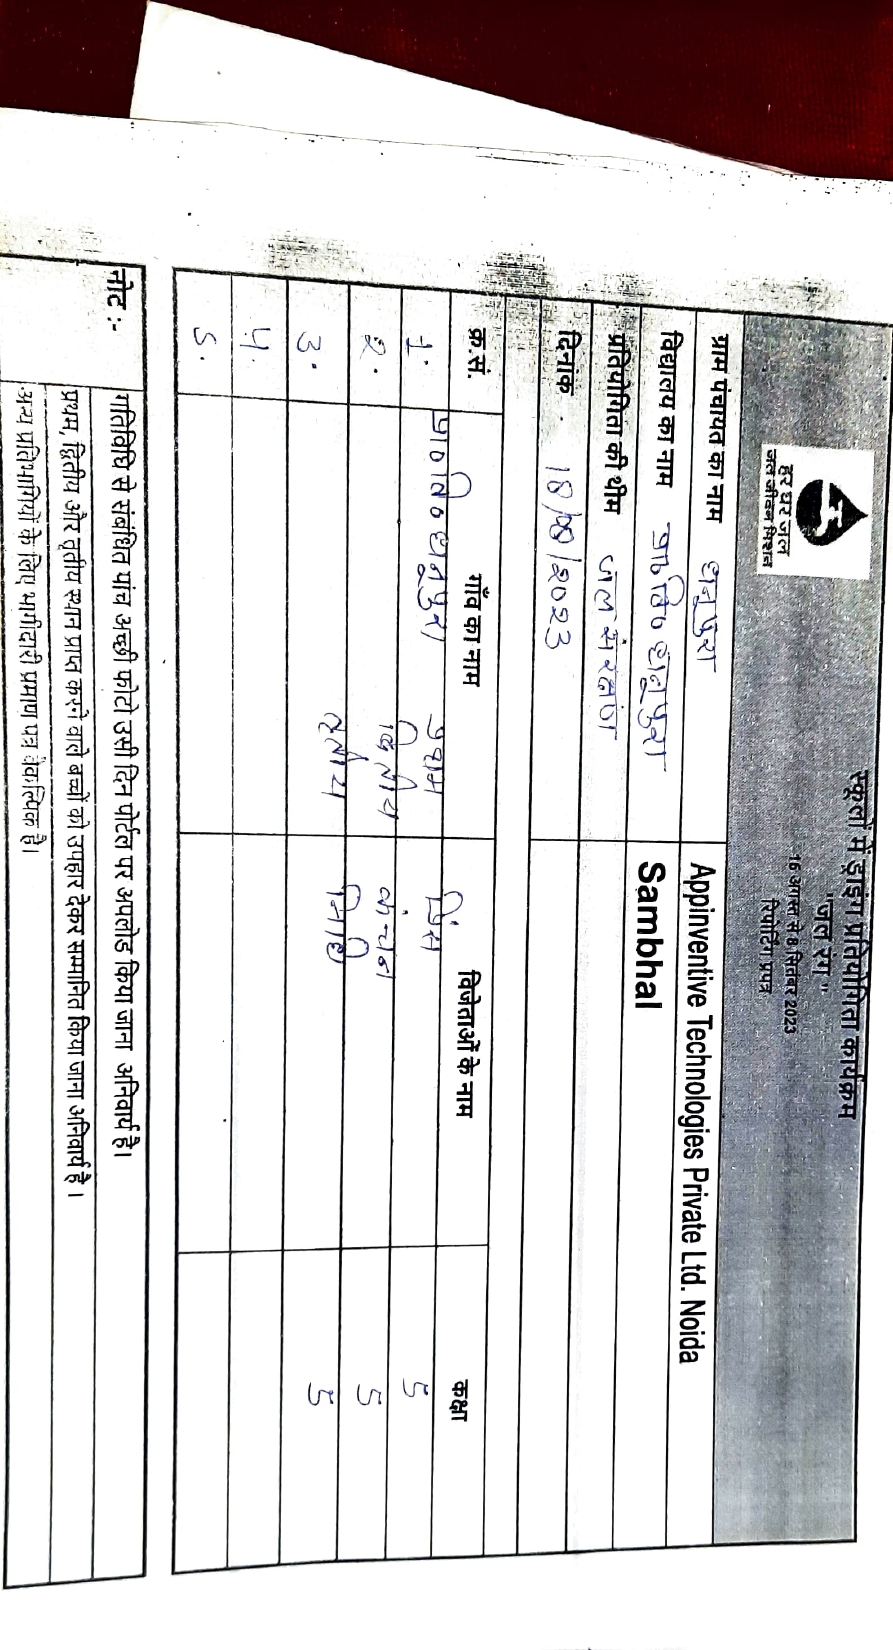 स्कूलों में ड्राइंग प्रतियोगिता कार्यक्रम
"जल रंग"
16 अगस्त से 8 सितंबर 2023
रिपोर्टिंग प्रपत्र
हर घर जल
जल जीवन मिशन
ग्राम पंचायत का नाम धनुपुरा Appinventive Technologies Private Ltd. Noida
विद्यालय का नाम प्रा० वि० धनुपुरा Sambhal
प्रतियोगिता की थीम जल संरक्षण
दिनांक 18/08/2023
क्र.सं. गाँव का नाम विजेताओं के नाम कक्षा
1. प्रा० वि० धनुपुरा प्रथम 5
2. द्वितीय कंचन 5
3. तृतीय निधि 5
4.
5.
नोट :- गतिविधि से संबंधित पांच अच्छी फोटो उसी दिन पोर्टल पर अपलोड किया जाना अनिवार्य है।
प्रथम, द्वितीय और तृतीय स्थान प्राप्त करने वाले बच्चों को उपहार देकर सम्मानित किया जाना अनिवार्य है।
अन्य प्रतिभागियों के लिए भागीदारी प्रमाण पत्र वैकल्पिक है।